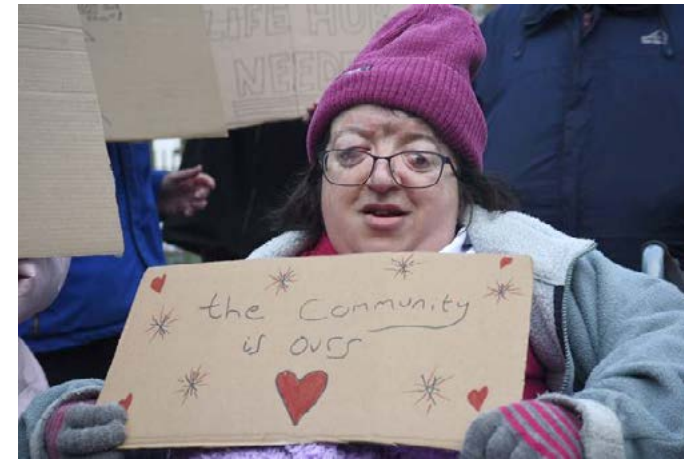 LIFE HUB
NEEDE
the Community
is ours